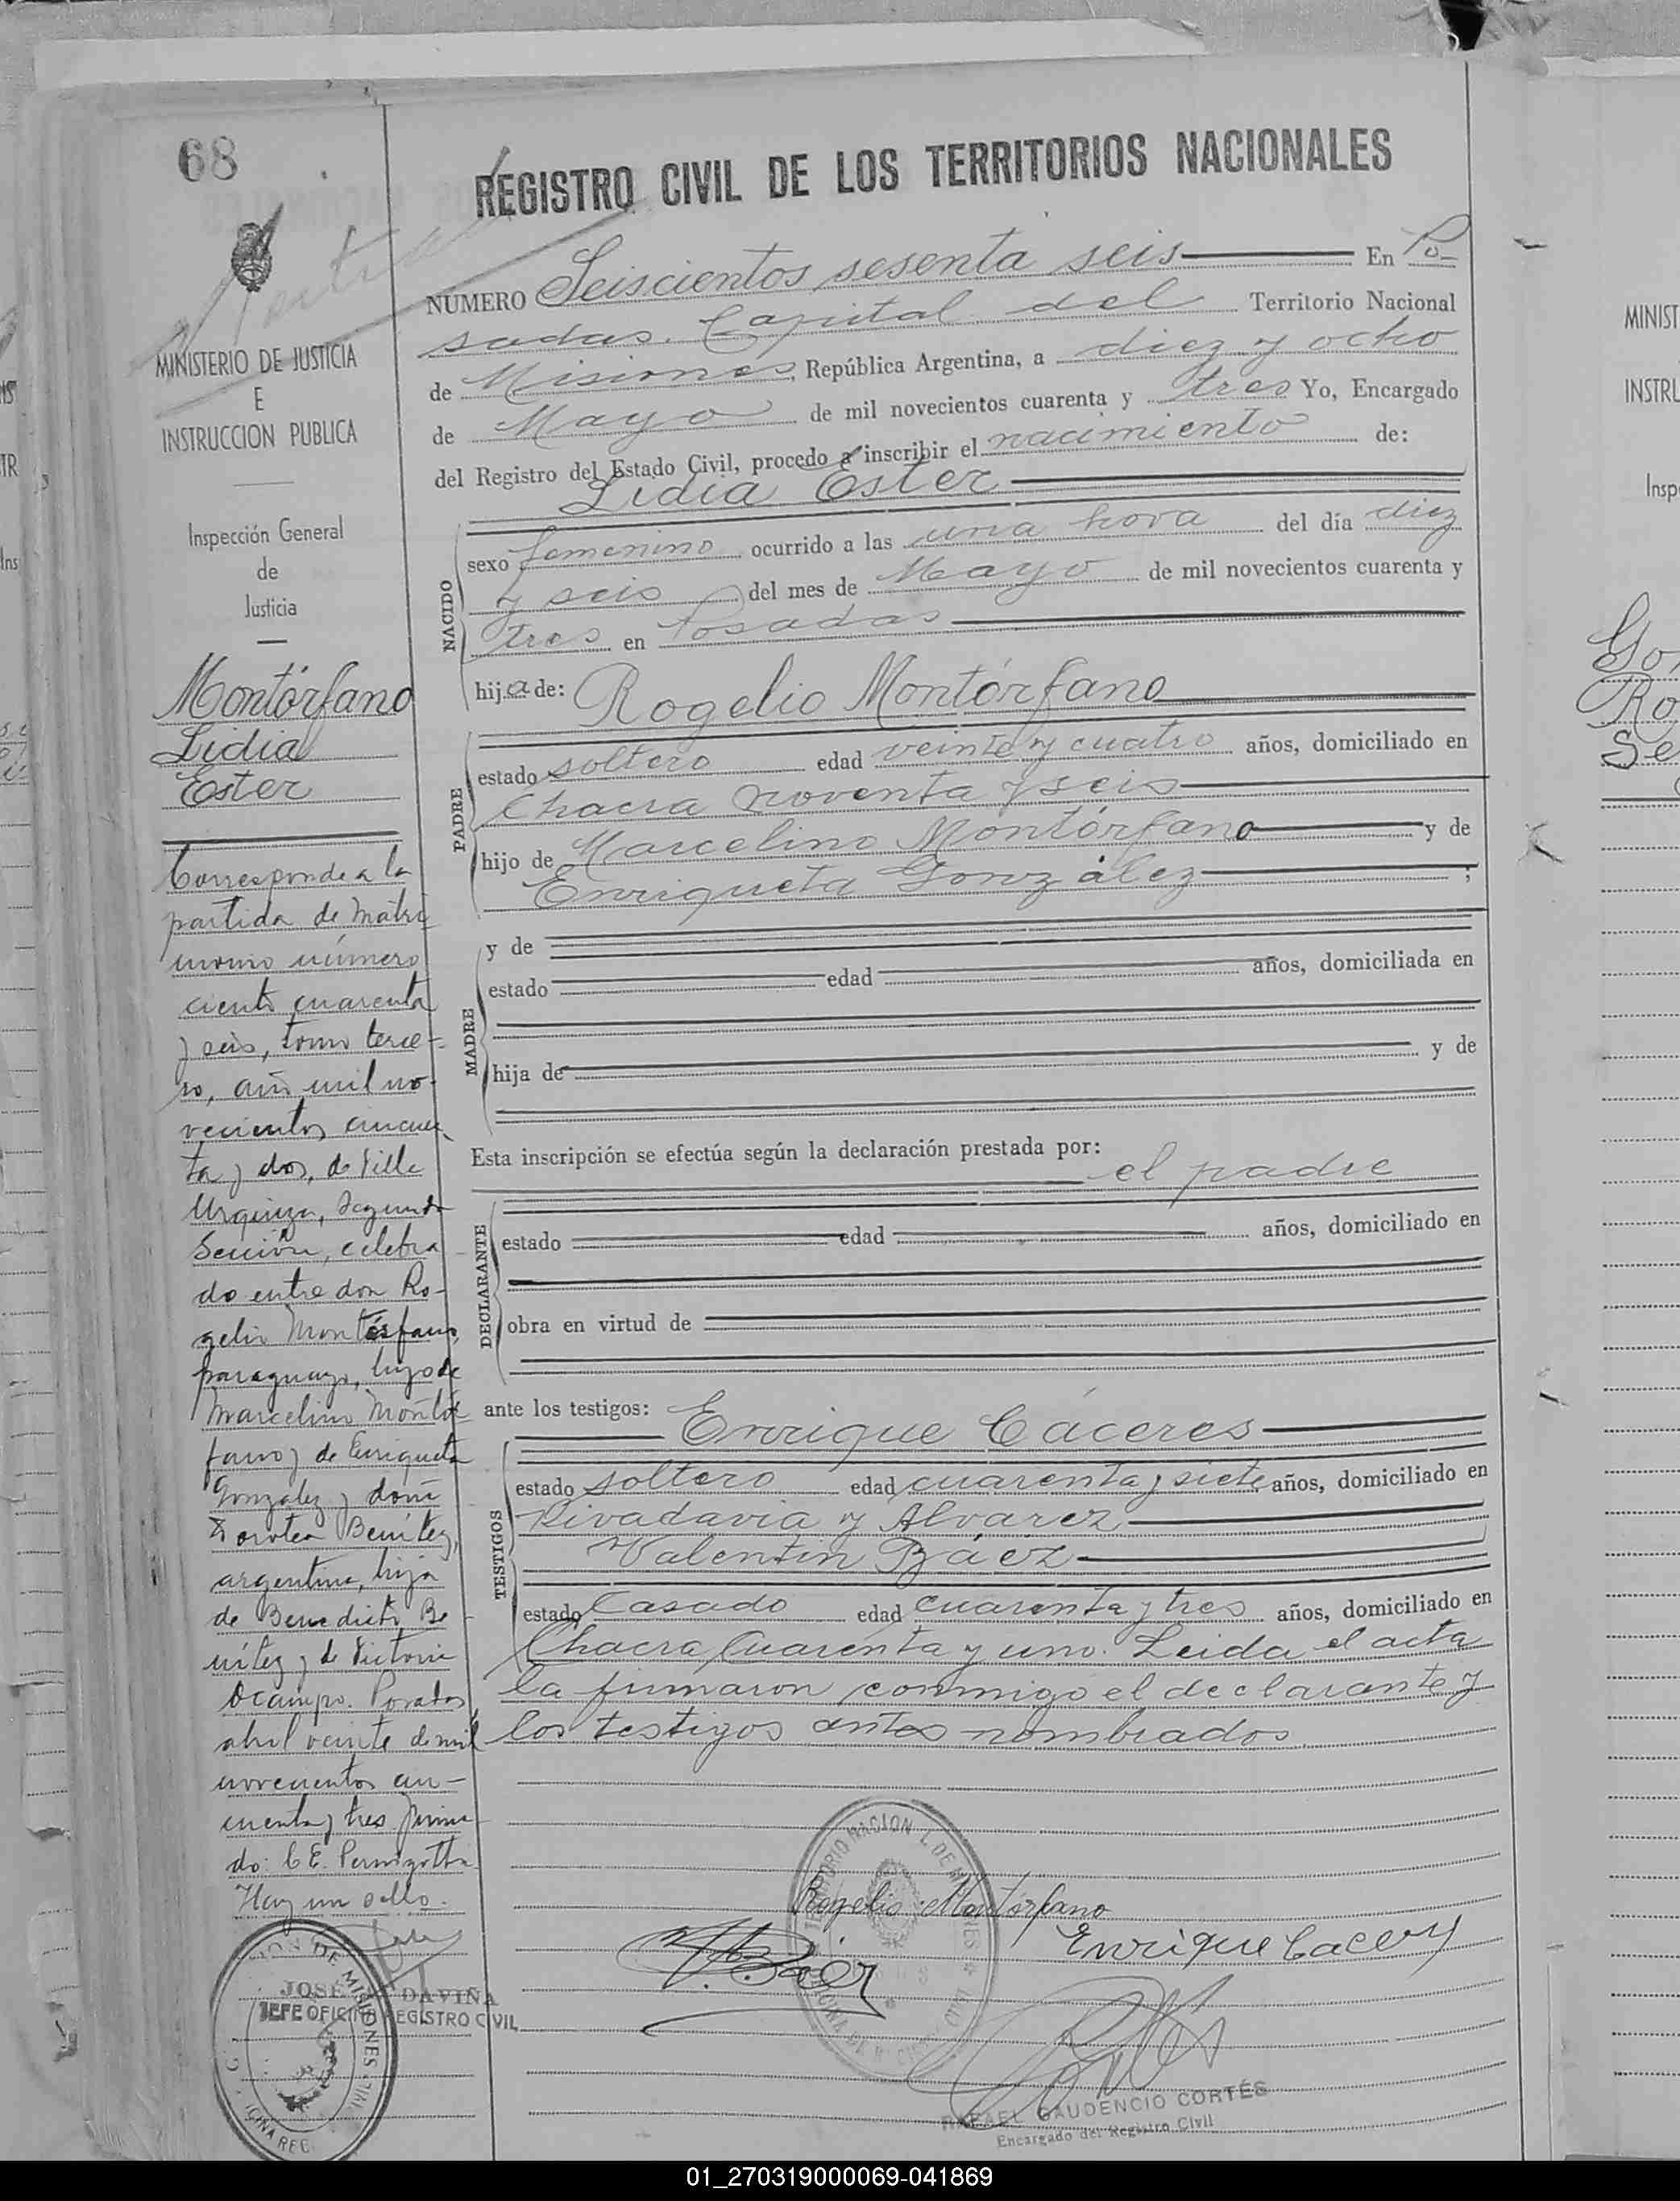 68
REGISTRO CIVIL DE LOS TERRITORIOS NACIONALES
NUMERO Seiscientos sesenta seis En Po-
sadas. Capital del Territorio Nacional
de Misiones, República Argentina, a diez y ocho
de Mayo de mil novecientos cuarenta y tres Yo, Encargado
del Registro del Estado Civil, procedo a inscribir el nacimiento de:
Lidia Ester
NACIDO
sexo femenino ocurrido a las una hora del día diez
y seis del mes de Mayo de mil novecientos cuarenta y
tres en Posadas
hija de: Rogelio Montórfano
PADRE
estado soltero edad veinte y cuatro años, domiciliado en
Chacra noventa y seis
hijo de Marcelino Montórfano y de
Enriqueta González ;
MADRE
y de
estado edad años, domiciliada en
hija de y de
Esta inscripción se efectúa según la declaración prestada por:
el padre
DECLARANTE
estado edad años, domiciliado en
obra en virtud de
ante los testigos: Enrique Cáceres
TESTIGOS
estado soltero edad cuarenta y siete años, domiciliado en
Rivadavia y Alvarez
Valentin Báez
estado Casado edad cuarenta y tres años, domiciliado en
Chacra Cuarenta y uno. Leida el acta
la firmaron conmigo el declarante y
los testigos antes nombrados.
Rogelio Montórfano
V. Báez
Enrique Caceres
RAFAEL GAUDENCIO CORTÉS
Encargado del Registro Civil
MINISTERIO DE JUSTICIA
E
INSTRUCCION PUBLICA
Inspección General
de
Justicia
Montórfano
Lidia
Ester
Corresponde a la
partida de matri
monio número
ciento cuarenta
y seis, tomo terce-
ro, año mil no-
vecientos cincuen
ta y dos, de Villa
Urquiza, Segunda
Sección, celebra
do entre don Ro-
gelio Montórfano,
paraguayo, hijo de
Marcelino Montór
fano y de Enriqueta
González y doña
Dorotea Benítez,
argentina, hija
de Benedicto Be
nítez y de Victoria
Ocampo. Posadas
abril veinte de mil
novecientos cin-
cuenta y tres firma
do: C E. Pernigotti.
Hay un sello.
JOSÉ DAVIÑA
JEFE OFICINA REGISTRO CIVIL
MINIST
INSTRU
Insp
01_270319000069-041869